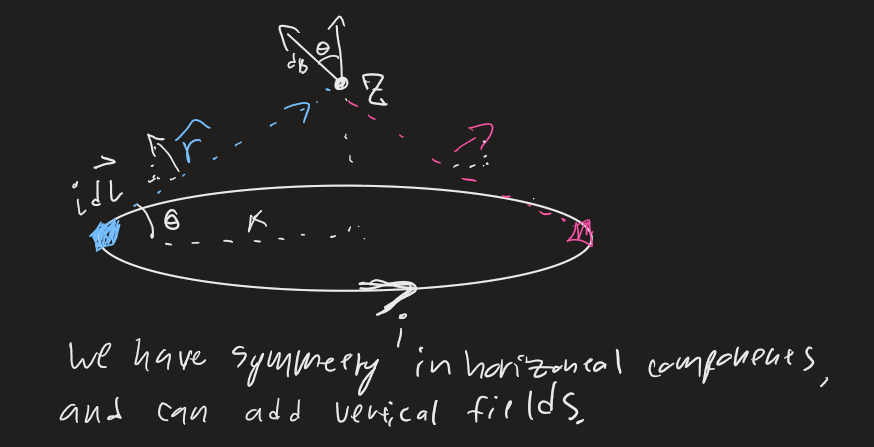 θ
dB
Z
r̂
i dl⃗
θ
i
We have symmetry in horizontal components,
and can add vertical fields.